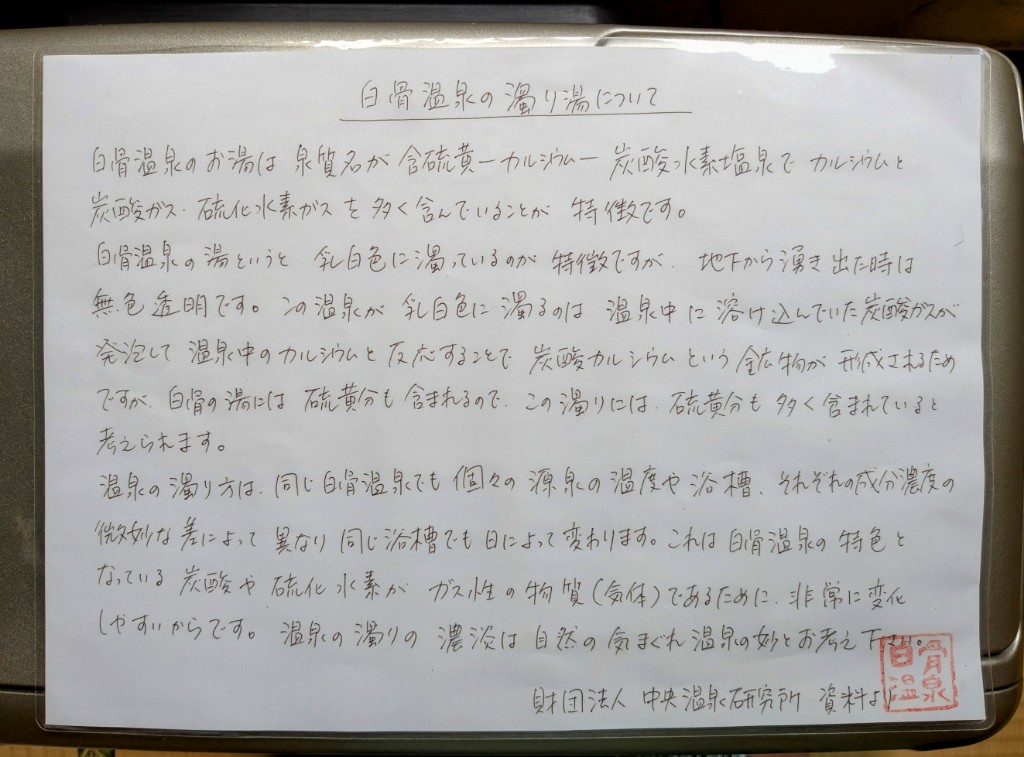 白骨温泉の濁り湯について
白骨温泉のお湯は 泉質名が 含硫黄ーカルシウムー 炭酸水素塩泉で カルシウムと
炭酸ガス・硫化水素ガス を 多く含んでいることが 特徴です。
白骨温泉の湯というと 乳白色に濁っているのが 特徴ですが、地下から湧き出た時は
無色透明です。この温泉が 乳白色に 濁るのは 温泉中に溶け込んでいた炭酸ガスが
発泡して 温泉中のカルシウムと 反応することで 炭酸カルシウムという 鉱物が 形成されるため
ですが、白骨の湯には 硫黄分も含まれるので、この濁りには、硫黄分も 多く含まれていると
考えられます。
温泉の濁り方は、同じ白骨温泉でも 個々の 源泉の温度や浴槽、それぞれの成分濃度の
微妙な差によって 異なり 同じ浴槽でも日によって変わります。これは白骨温泉の特色と
なっている 炭酸や 硫化水素が ガス性の物質(気体)であるために、非常に変化
しやすいからです。温泉の濁りの 濃淡は自然の気まぐれ 温泉の妙とお考え下さい。
財団法人 中央温泉研究所 資料より
白骨
温泉